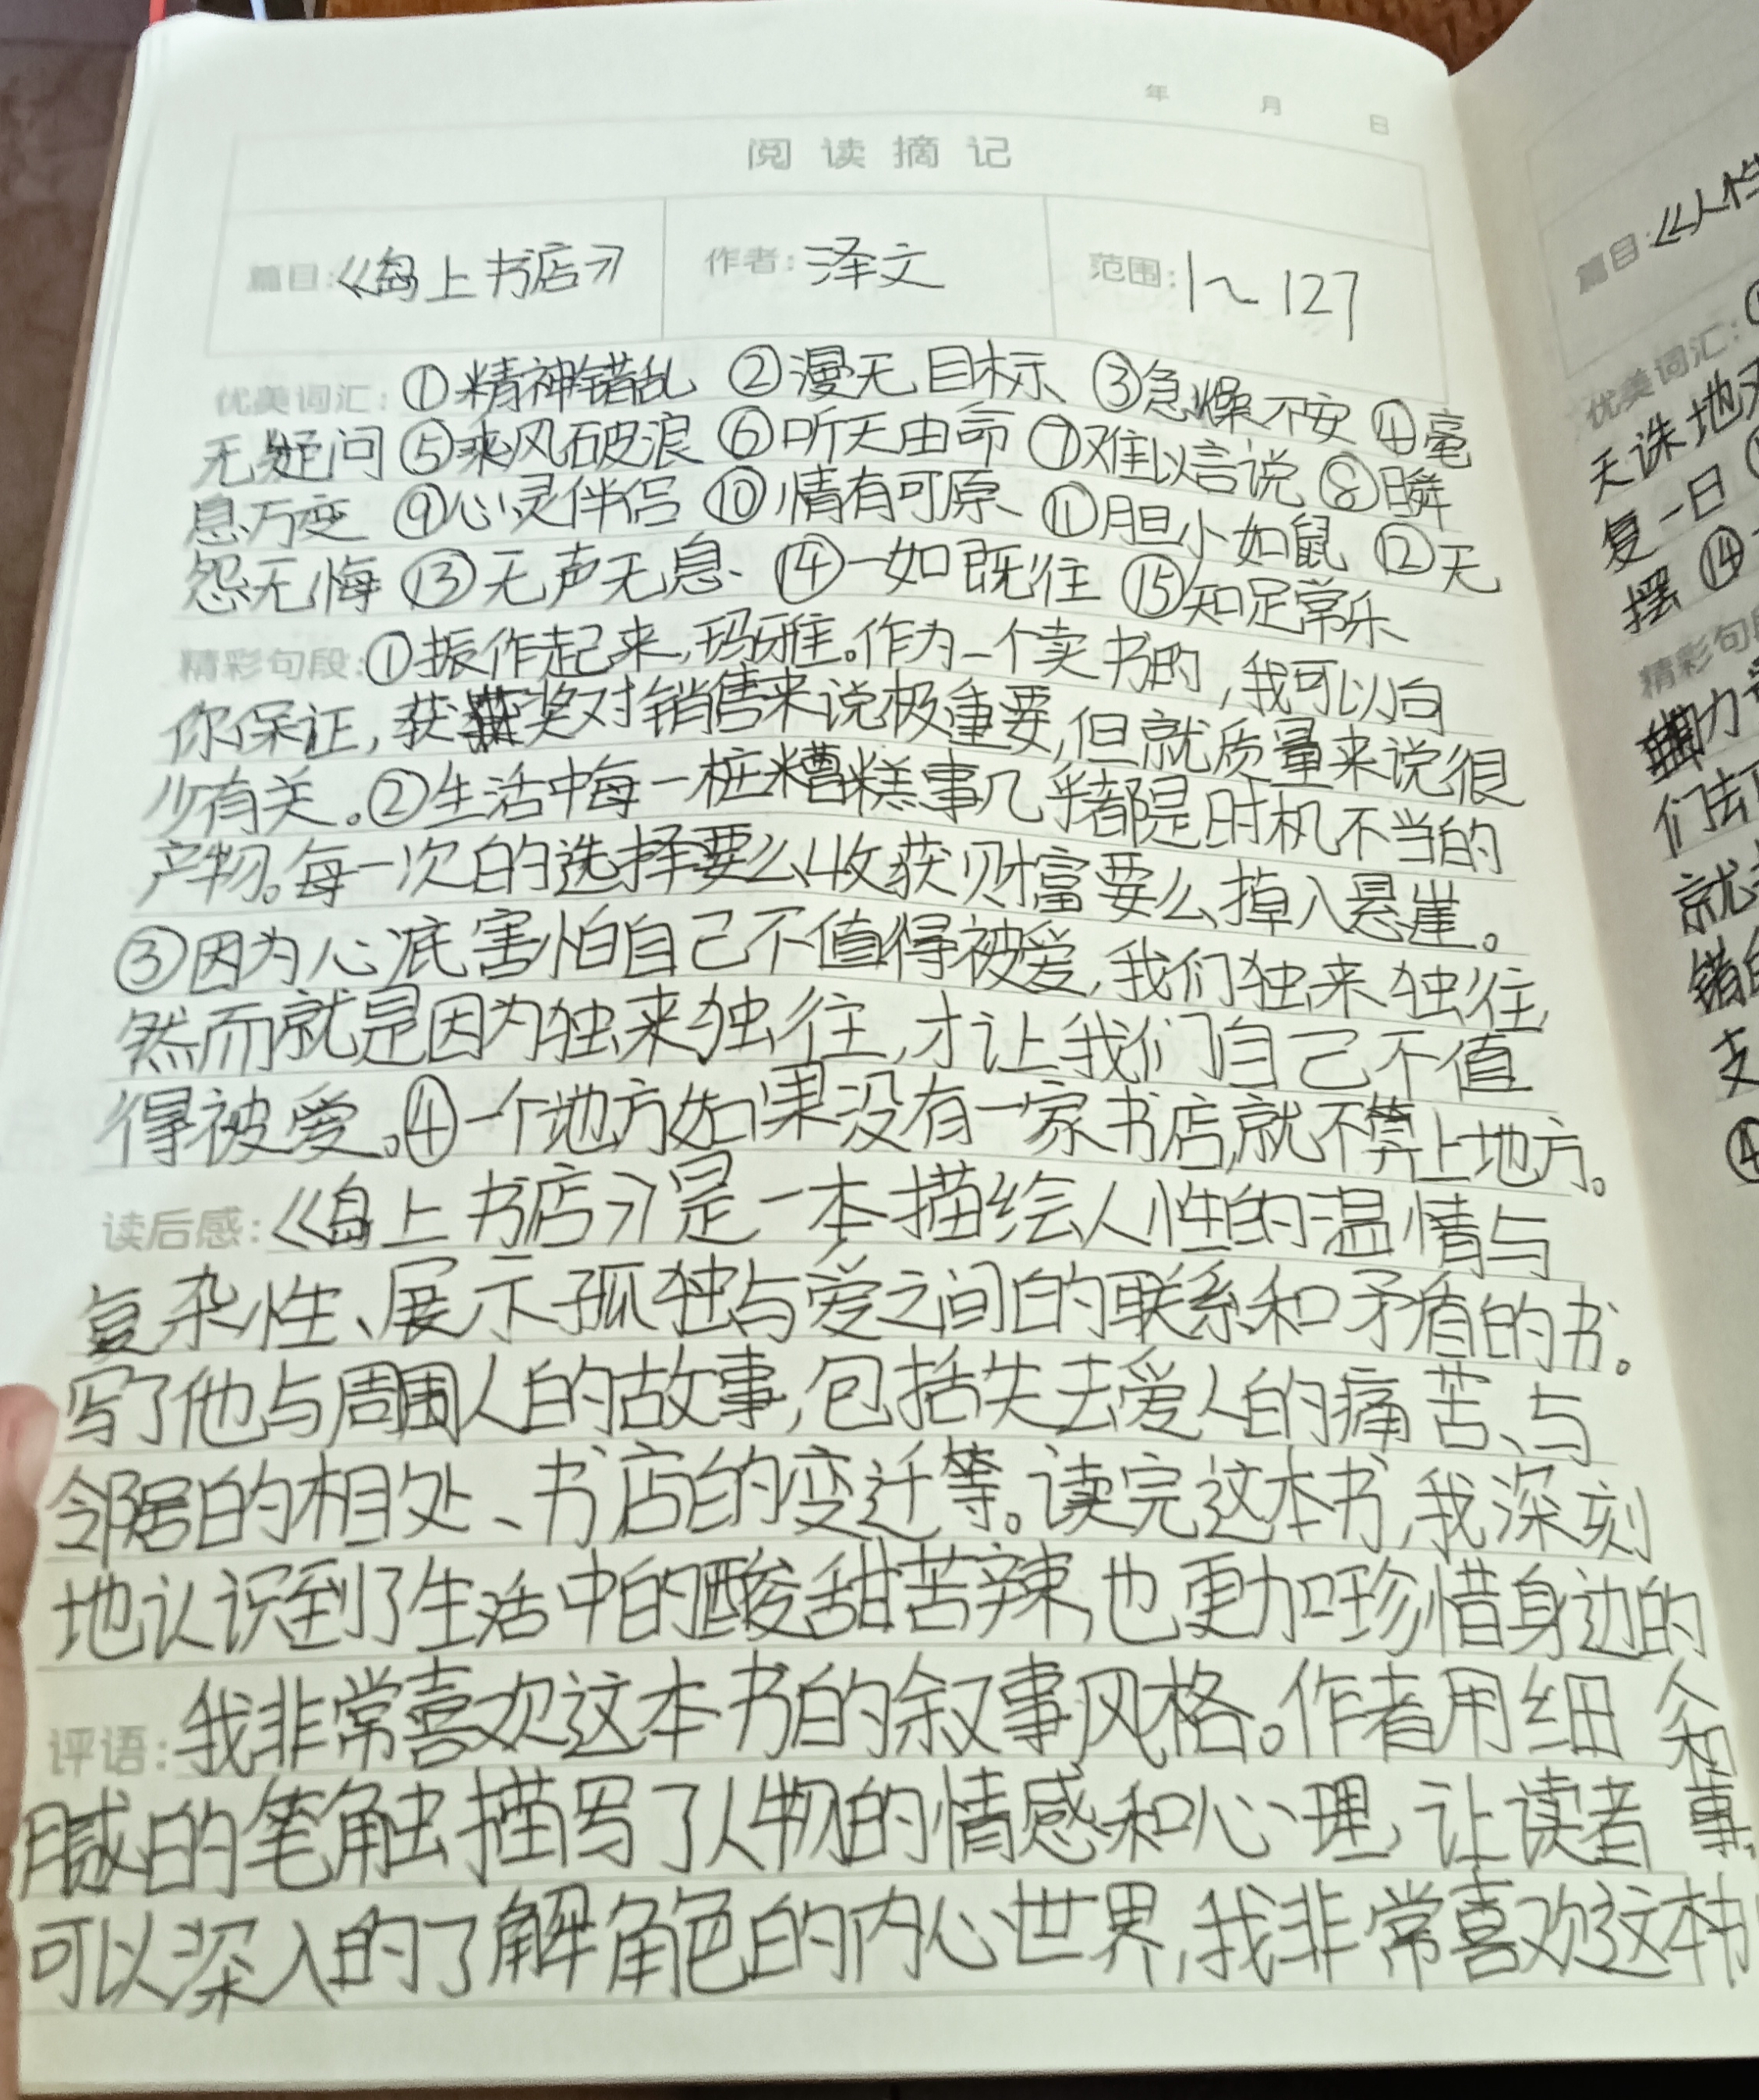 年 月 日
阅读摘记
篇目:《岛上书店》 作者:泽文 范围:1~127
优美词汇: ①精神错乱 ②漫无目标 ③急燥不安 ④毫
无疑问 ⑤乘风破浪 ⑥听天由命 ⑦难以言说 ⑧瞬
息万变 ⑨心灵伴侣 ⑩情有可原 ⑪胆小如鼠 ⑫无
怨无悔 ⑬无声无息 ⑭一如既往 ⑮知足常乐
精彩句段:①振作起来,玛雅。作为一个卖书的,我可以向
你保证,获奖对销售来说极重要,但就质量来说很
少有关。②生活中每一桩糟糕事几乎都是时机不当的
产物。每一次的选择要么收获财富要么掉入悬崖。
③因为心底害怕自己不值得被爱,我们独来独往,
然而就是因为独来独往,才让我们自己不值
得被爱。④一个地方如果没有一家书店,就不算上地方。
读后感:《岛上书店》是一本描绘人性的温情与
复杂性、展示孤独与爱之间的联系和矛盾的书。
写了他与周围人的故事,包括失去爱人的痛苦、与
邻居的相处、书店的变迁等。读完这本书,我深刻
地认识到了生活中的酸甜苦辣,也更加珍惜身边的
人和事。
评语:我非常喜欢这本书的叙事风格。作者用细
腻的笔触描写了人物的情感和心理,让读者
可以深入的了解角色的内心世界,我非常喜欢这本书
篇目:《人性
优美词汇:
天诛地
复一日
摆 ⑭
精彩句段
力
们去
就
错
支
④